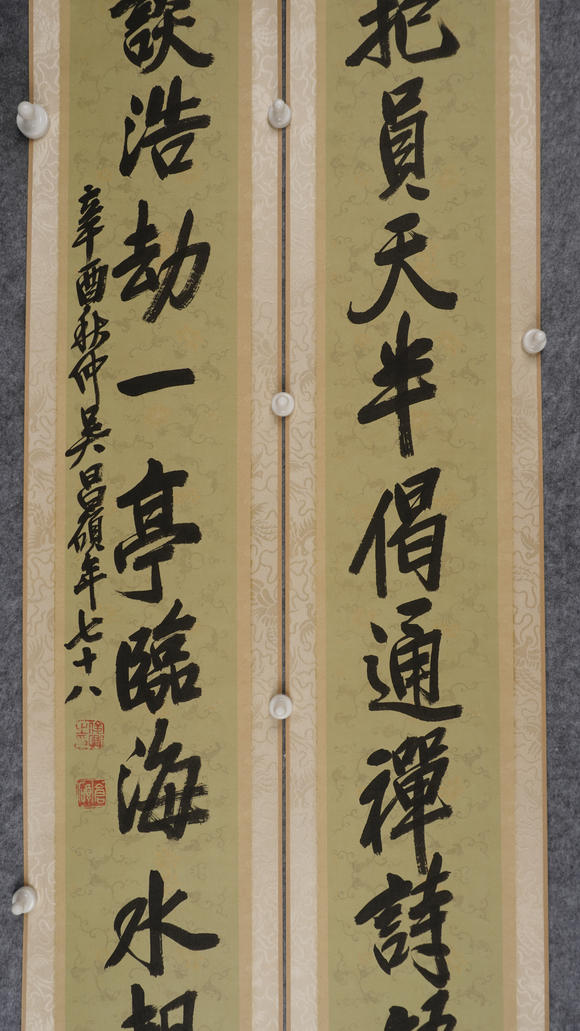 抱員天半偈通禪詩
談浩劫一亭臨海水
辛酉秋仲吳昌碩年七十八